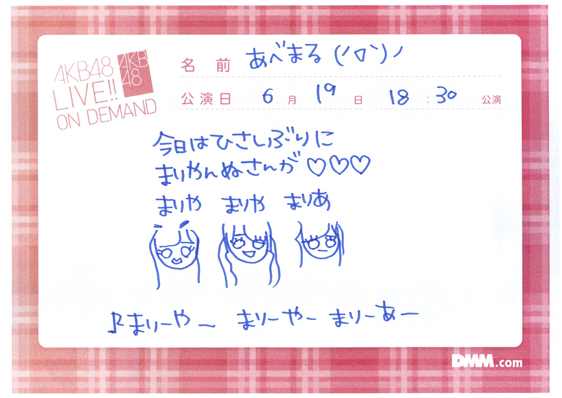 AKB48
LIVE!!
ON DEMAND
AKB
48
名前 あべまる (ﾉ▽`)ノ
公演日 6月19日 18:30公演
今日はひさしぶりに
まりやんぬさんが♡♡♡
まりや まりや まりあ
♪まりーやー まりーやー まりーあー
DMM.com